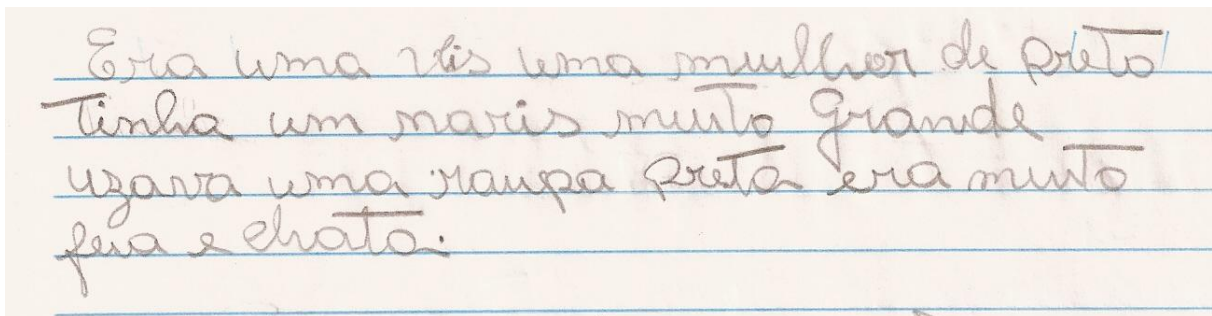 Era uma veis uma mulhor de preto
Tinha um naris muito grande
uzava uma roupa preta era muito
feia e chata.